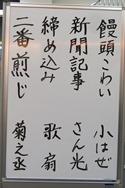 饅頭こわい 小はぜ
新聞記事 さん光
締め込み 歌扇
二番煎じ 菊之丞